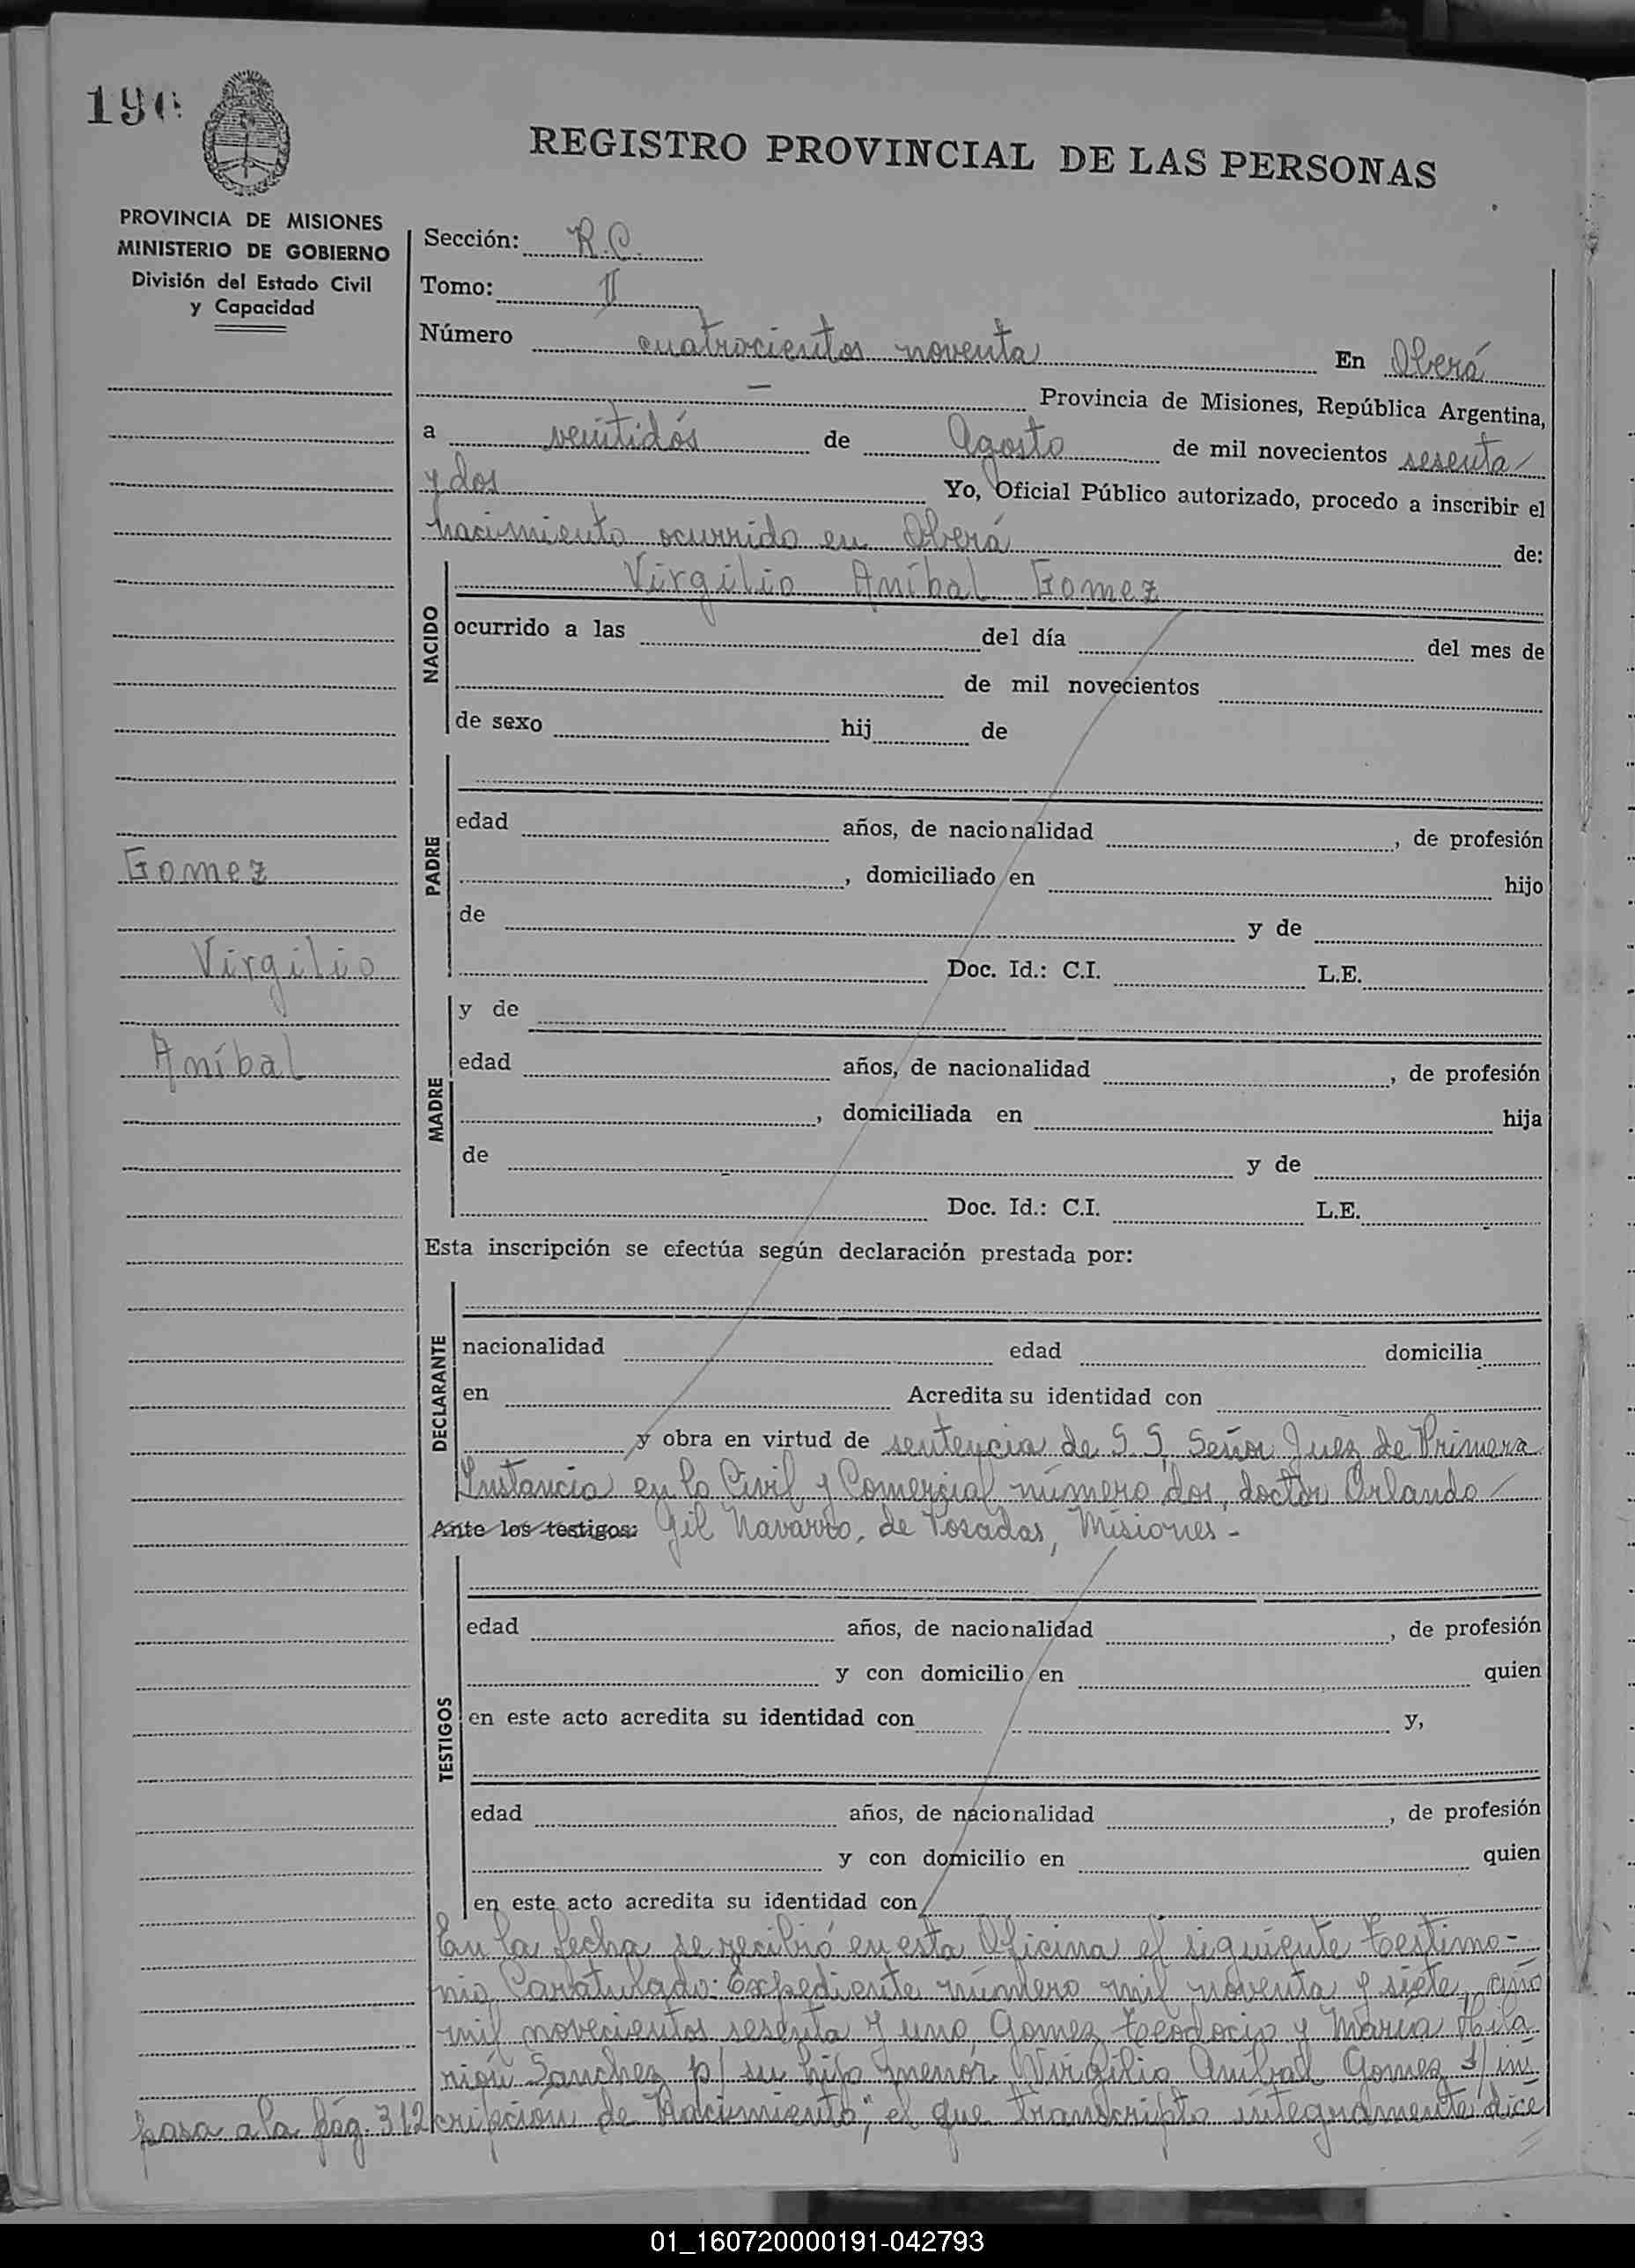 REGISTRO PROVINCIAL DE LAS PERSONAS
PROVINCIA DE MISIONES
MINISTERIO DE GOBIERNO
División del Estado Civil
y Capacidad
Gomez
Virgilio
Aníbal
Sección: R.C.
Tomo: II
Número cuatrocientos noventa En Oberá
— Provincia de Misiones, República Argentina,
a veintidós de Agosto de mil novecientos sesenta
y dos Yo, Oficial Público autorizado, procedo a inscribir el
nacimiento ocurrido en Oberá de:
NACIDO
Virgilio Aníbal Gomez
ocurrido a las del día del mes de
de mil novecientos
de sexo hij de
PADRE
edad años, de nacionalidad , de profesión
, domiciliado en hijo
de y de
Doc. Id.: C.I. L.E.
MADRE
y de
edad años, de nacionalidad , de profesión
, domiciliada en hija
de y de
Doc. Id.: C.I. L.E.
Esta inscripción se efectúa según declaración prestada por:
DECLARANTE
nacionalidad edad domicilia
en Acredita su identidad con
y obra en virtud de sentencia de S. S. Señor Juez de Primera
Instancia en lo Civil y Comercial número dos, doctor Orlando
Ante los testigos: Gil Navarro, de Posadas, Misiones -
TESTIGOS
edad años, de nacionalidad , de profesión
y con domicilio en quien
en este acto acredita su identidad con y,
edad años, de nacionalidad , de profesión
y con domicilio en quien
en este acto acredita su identidad con
En la fecha se recibió en esta Oficina el siguiente testimo-
nio Caratulado: Expediente número mil noventa y siete, año
mil novecientos sesenta y uno Gomez Teodocio y María Hila
Sanchez p/ su hijo menor Virgilio Anibal Gomez s/ ins
cripción de Nacimiento", el que transcripto integramente dice
pasa a la pág. 312
01_160720000191-042793